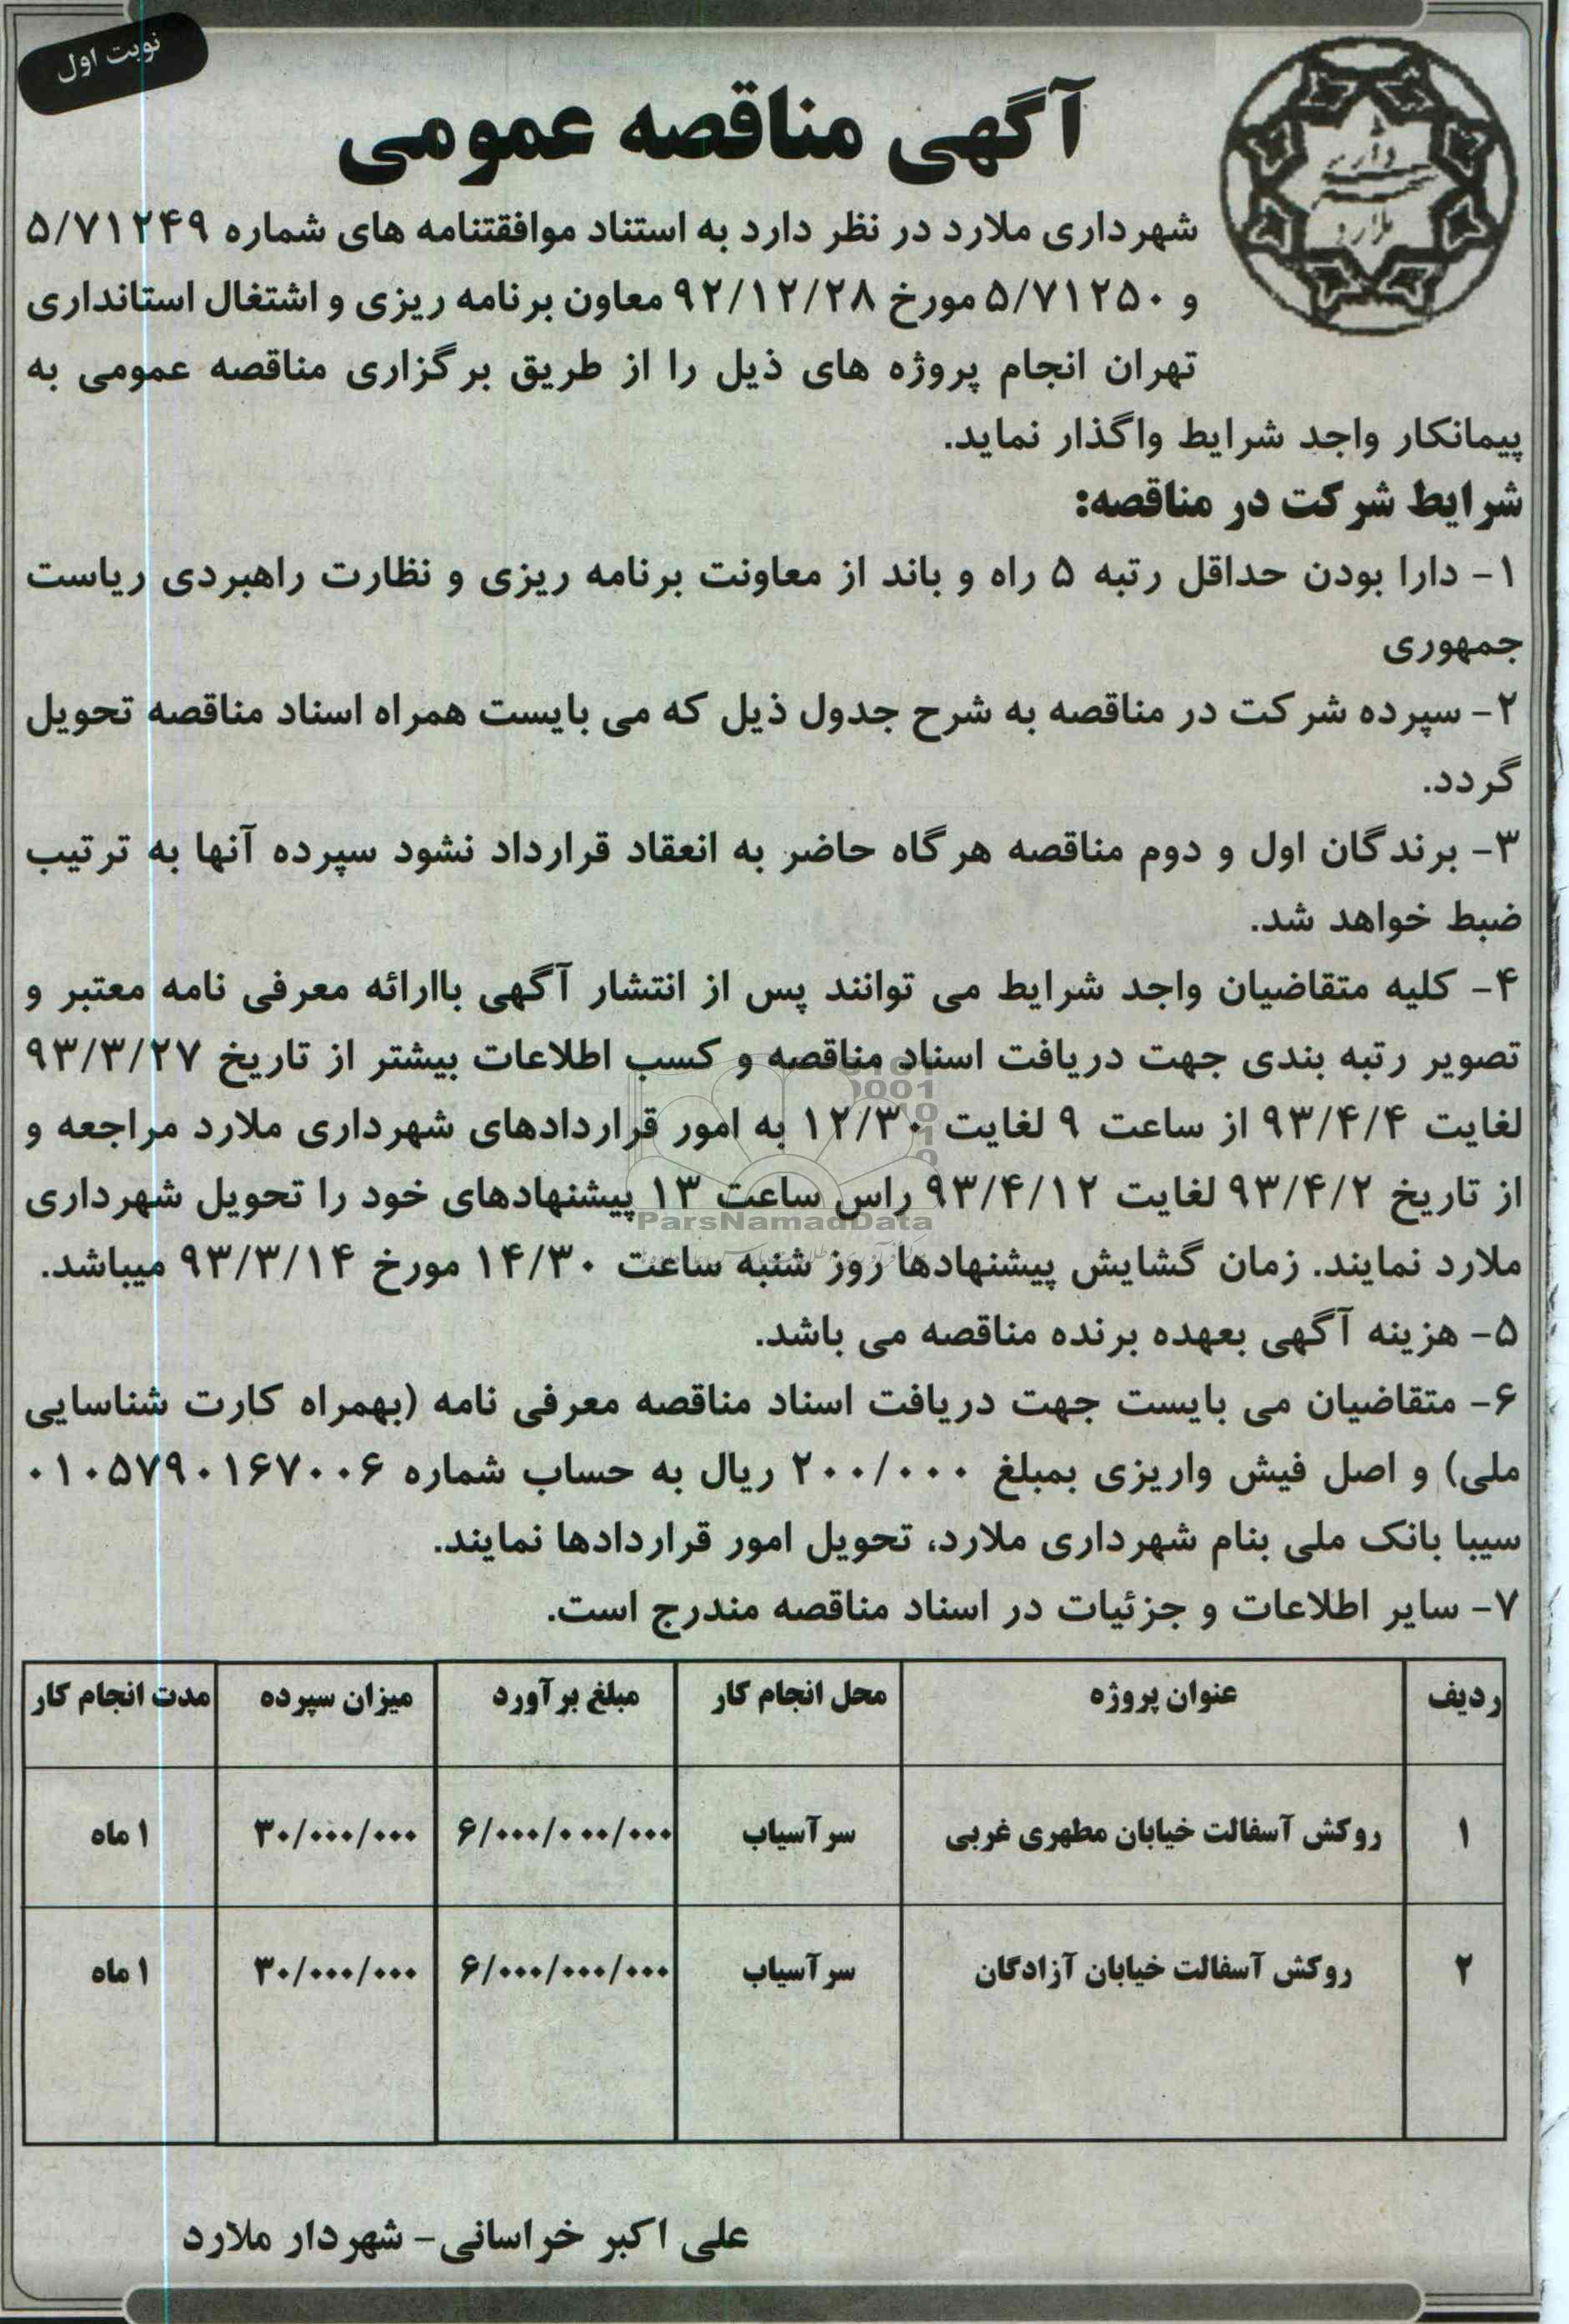 نوبت اول
آگهی مناقصه عمومی
شهرداری ملارد در نظر دارد به استناد موافقتنامه های شماره ۵/۷۱۲۴۹
و ۵/۷۱۲۵۰ مورخ ۹۲/۱۲/۲۸ معاون برنامه ریزی و اشتغال استانداری
تهران انجام پروژه های ذیل را از طریق برگزاری مناقصه عمومی به
پیمانکار واجد شرایط واگذار نماید.
شرایط شرکت در مناقصه:
۱- دارا بودن حداقل رتبه ۵ راه و باند از معاونت برنامه ریزی و نظارت راهبردی ریاست
جمهوری
۲- سپرده شرکت در مناقصه به شرح جدول ذیل که می بایست همراه اسناد مناقصه تحویل
گردد.
۳- برندگان اول و دوم مناقصه هرگاه حاضر به انعقاد قرارداد نشود سپرده آنها به ترتیب
ضبط خواهد شد.
۴- کلیه متقاضیان واجد شرایط می توانند پس از انتشار آگهی باارائه معرفی نامه معتبر و
تصویر رتبه بندی جهت دریافت اسناد مناقصه و کسب اطلاعات بیشتر از تاریخ ۹۳/۳/۲۷
لغایت ۹۳/۴/۴ از ساعت ۹ لغایت ۱۲/۳۰ به امور قراردادهای شهرداری ملارد مراجعه و
از تاریخ ۹۳/۴/۲ لغایت ۹۳/۴/۱۲ راس ساعت ۱۳ پیشنهادهای خود را تحویل شهرداری
ParsNamadData
ملارد نمایند. زمان گشایش پیشنهادها روز شنبه ساعت ۱۴/۳۰ مورخ ۹۳/۳/۱۴ میباشد.
۵- هزینه آگهی بعهده برنده مناقصه می باشد.
۶- متقاضیان می بایست جهت دریافت اسناد مناقصه معرفی نامه (بهمراه کارت شناسایی
ملی) و اصل فیش واریزی بمبلغ ۲۰۰/۰۰۰ ریال به حساب شماره ۰۱۰۵۷۹۰۱۶۷۰۰۶
سیبا بانک ملی بنام شهرداری ملارد، تحویل امور قراردادها نمایند.
۷- سایر اطلاعات و جزئیات در اسناد مناقصه مندرج است.
ردیف عنوان پروژه محل انجام کار مبلغ برآورد میزان سپرده مدت انجام کار
۱ روکش آسفالت خیابان مطهری غربی سرآسیاب ۶/۰۰۰/۰۰۰/۰۰۰ ۳۰/۰۰۰/۰۰۰ ۱ ماه
۲ روکش آسفالت خیابان آزادگان سرآسیاب ۶/۰۰۰/۰۰۰/۰۰۰ ۳۰/۰۰۰/۰۰۰ ۱ ماه
علی اکبر خراسانی- شهردار ملارد